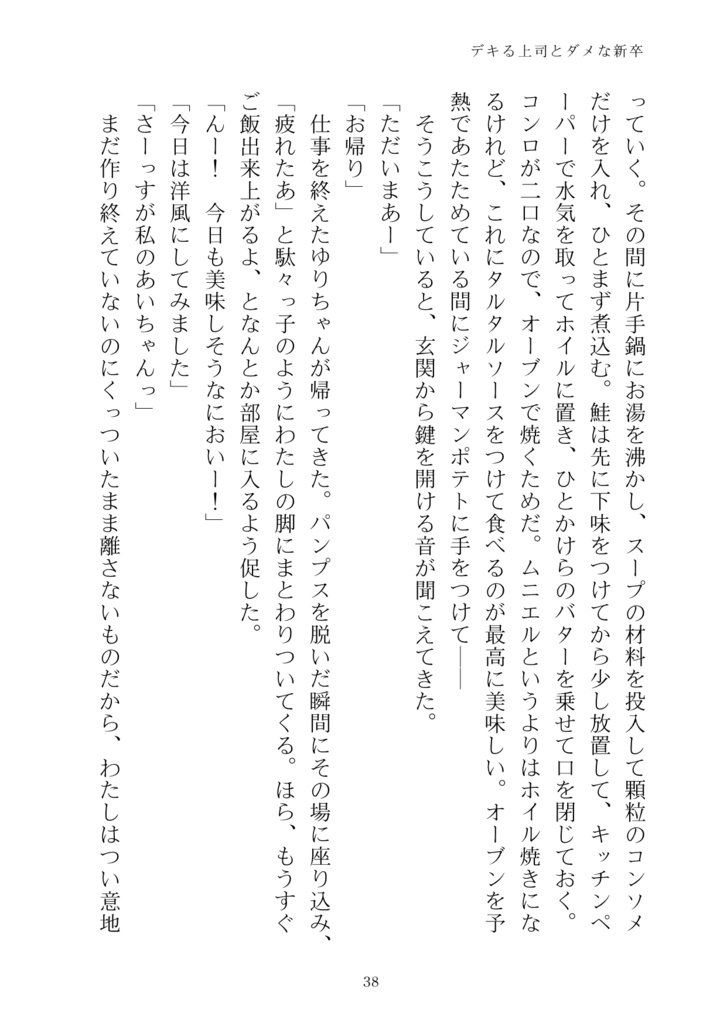 デキる上司とダメな新卒
っていく。その間に片手鍋にお湯を沸かし、スープの材料を投入して顆粒のコンソメ
だけを入れ、ひとまず煮込む。鮭は先に下味をつけてから少し放置して、キッチンペ
ーパーで水気を取ってホイルに置き、ひとかけらのバターを乗せて口を閉じておく。
コンロが二口なので、オーブンで焼くためだ。ムニエルというよりはホイル焼きにな
るけれど、これにタルタルソースをつけて食べるのが最高に美味しい。オーブンを予
熱であたためている間にジャーマンポテトに手をつけて――
そうこうしていると、玄関から鍵を開ける音が聞こえてきた。
「ただいまあー」
「お帰り」
仕事を終えたゆりちゃんが帰ってきた。パンプスを脱いだ瞬間にその場に座り込み、
「疲れたあ」と駄々っ子のようにわたしの脚にまとわりついてくる。ほら、もうすぐ
ご飯出来上がるよ、となんとか部屋に入るよう促した。
「んー！　今日も美味しそうなにおいー！」
「今日は洋風にしてみました」
「さーっすが私のあいちゃんっ」
まだ作り終えていないのにくっついたまま離さないものだから、わたしはつい意地
38